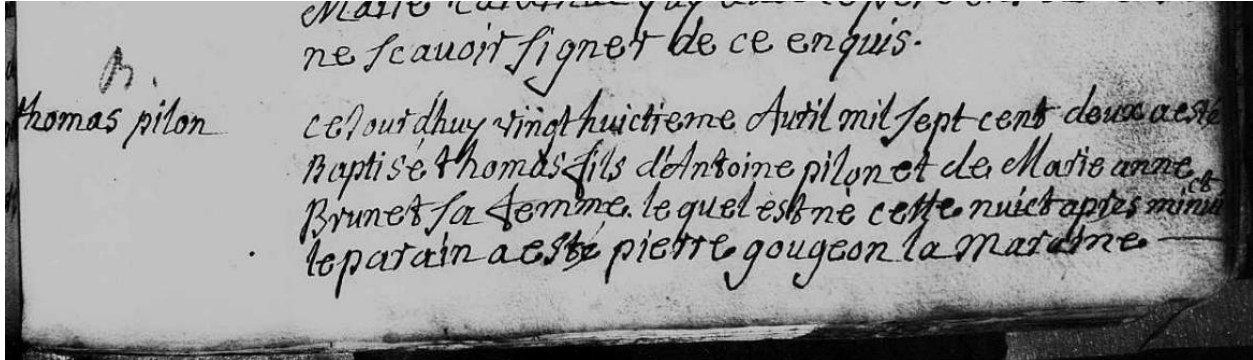 Marie
ne scavoir signer de ce enquis.
B.
thomas pilon
ce Jourdhuy vingt huictieme Avril mil sept cent deux a esté
Baptisé thomas fils d'Antoine pilon et de Marie anne
Brunet sa femme. le quel est né cette nuict apres minuict
le parain a esté pierre gougeon la Maraine